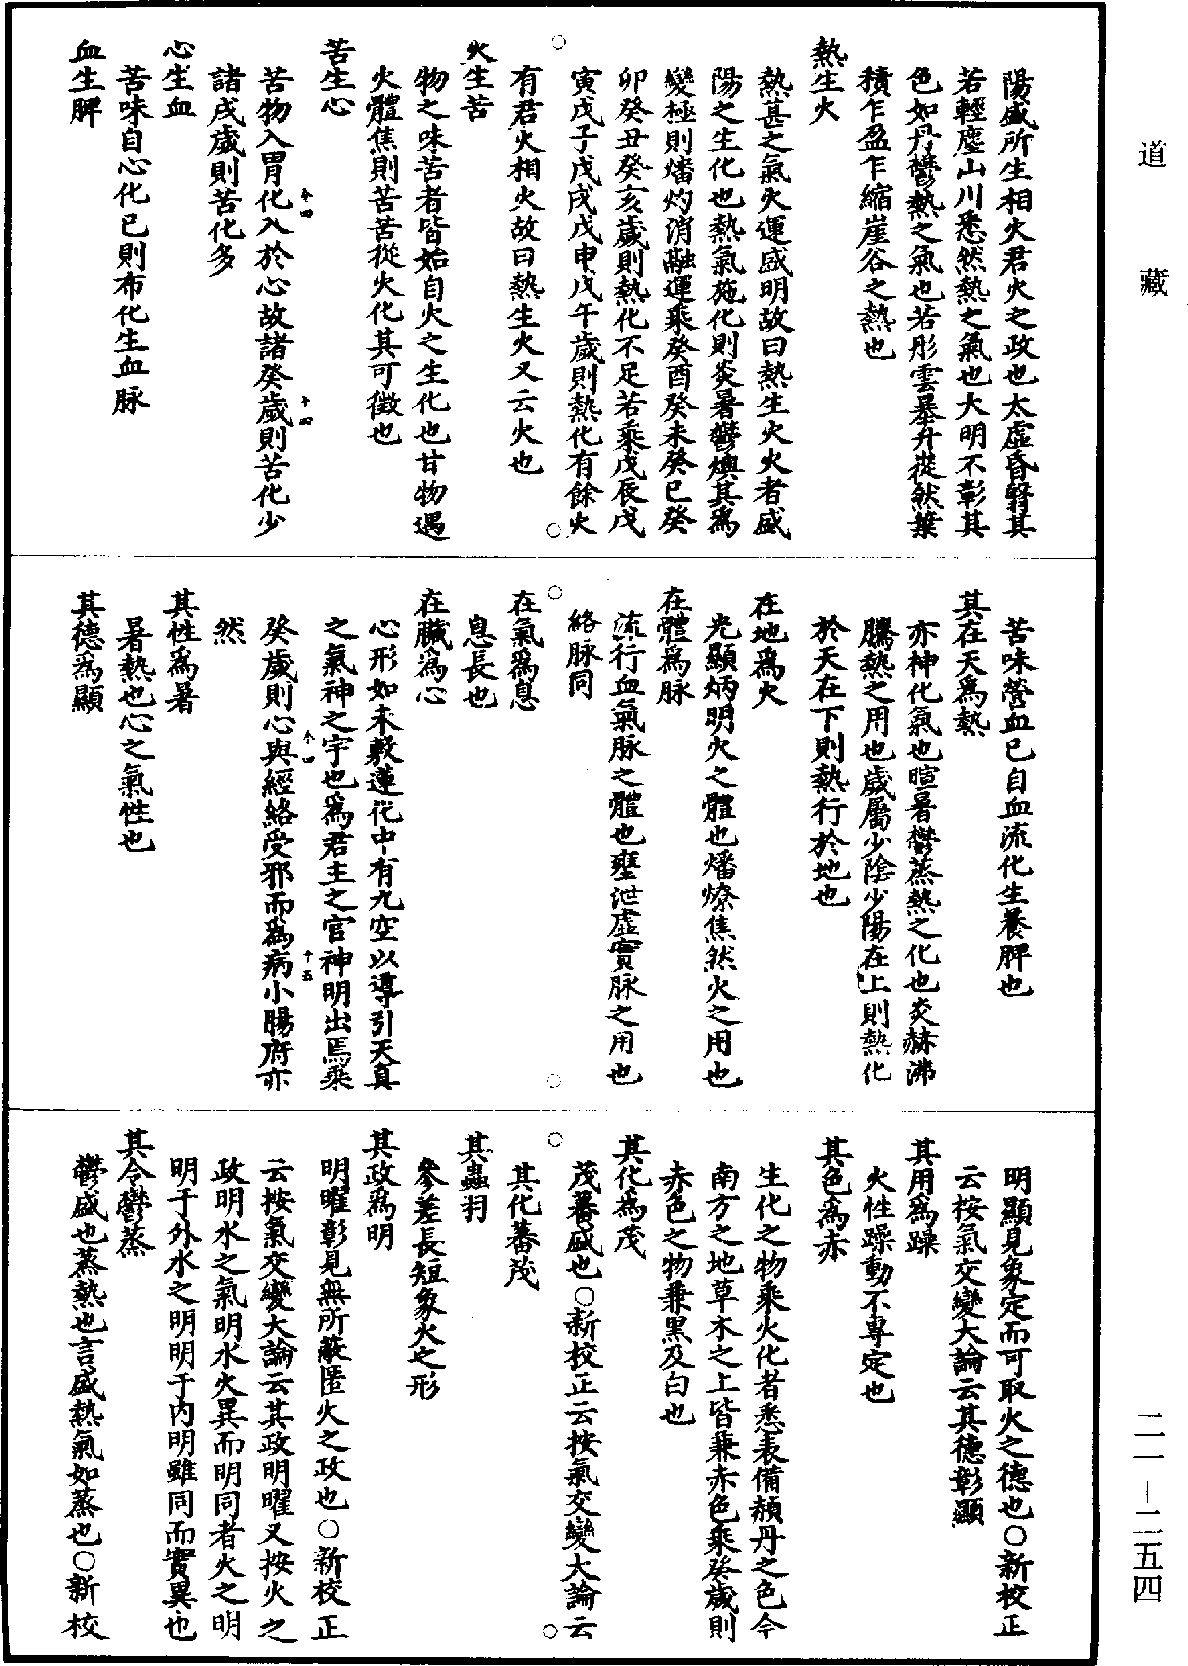 陽盛所生相火君火之政也太虛昏翳其
若輕塵山川悉然熱之氣也大明不彰其
色如丹鬱熱之氣也若彤雲暴升嵸然葉
積乍盈乍縮崖谷之熱也
熱生火
熱甚之氣火運盛明故曰熱生火火者盛
陽之生化也熱氣施化則炎暑鬱燠其爲
變極則燔灼消融運乘癸酉癸未癸巳癸
卯癸丑癸亥歲則熱化不足若乘戊辰戊
寅戊子戊戌戊申戊午歲則熱化有餘火
有君火相火故曰熱生火又云火也
火生苦
物之味苦者皆始自火之生化也甘物遇
火體焦則苦苦從火化其可徵也
苦生心
苦物入胃化入於心故諸癸歲則苦化少
諸戊歲則苦化多
心生血
苦味自心化已則布化生血脉
血生脾
苦味營血已自血流化生養脾也
其在天爲熱
亦神化氣也暄暑鬱蒸熱之化也炎赫沸
騰熱之用也歲屬少陰少陽在上則熱化
於天在下則熱行於地也
在地爲火
光顯炳明火之體也燔燎焦然火之用也
在體爲脉
流行血氣脉之體也壅泄虛實脉之用也
絡脉同
在氣爲息
息長也
在臟爲心
心形如未敷蓮花中有九空以導引天真
之氣神之宇也爲君主之官神明出焉乘
癸歲則心與經絡受邪而爲病小腸府亦
然
其性爲暑
暑熱也心之氣性也
其德爲顯
明顯見象定而可取火之德也○新校正
云按氣交變大論云其德彰顯
其用爲躁
火性躁動不專定也
其色爲赤
生化之物乘火化者悉表備赬丹之色今
南方之地草木之上皆兼赤色乘癸歲則
赤色之物兼黑及白也
其化爲茂
茂蕃盛也○新校正云按氣交變大論云
其化蕃茂
其蟲羽
參差長短象火之形
其政爲明
明曜彰見無所蔽匿火之政也○新校正
云按氣交變大論云其政明曜又按火之
政明水之氣明水火異而明同者火之明
明于外水之明明于内明雖同而實異也
其令鬱蒸
鬱盛也蒸熱也言盛熱氣如蒸也○新校
道藏
二一－二五四